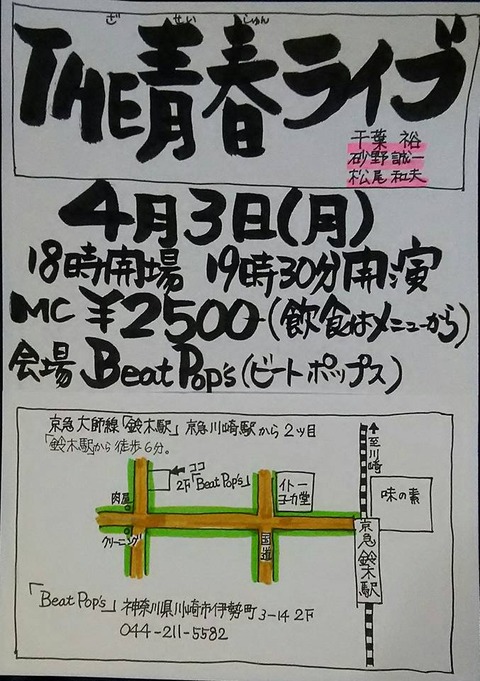 ざ せい しゅん
THE青春ライブ
千葉 裕
砂野誠一
松尾和夫
4月3日(月)
18時開場 19時30分開演
MC ¥2500-(飲食はメニューから)
会場 Beat Pop's(ビートポップス)
京急大師線「鈴木駅」京急川崎駅から2ツ目
「鈴木駅」から徒歩6分。
至川崎
ココ
2F「Beat Pop's」
肉屋
クリーニング
イトーヨーカ堂
国道
味の素
京急鈴木駅
「Beat Pop's」神奈川県川崎市伊勢町3-14 2F
044-211-5582